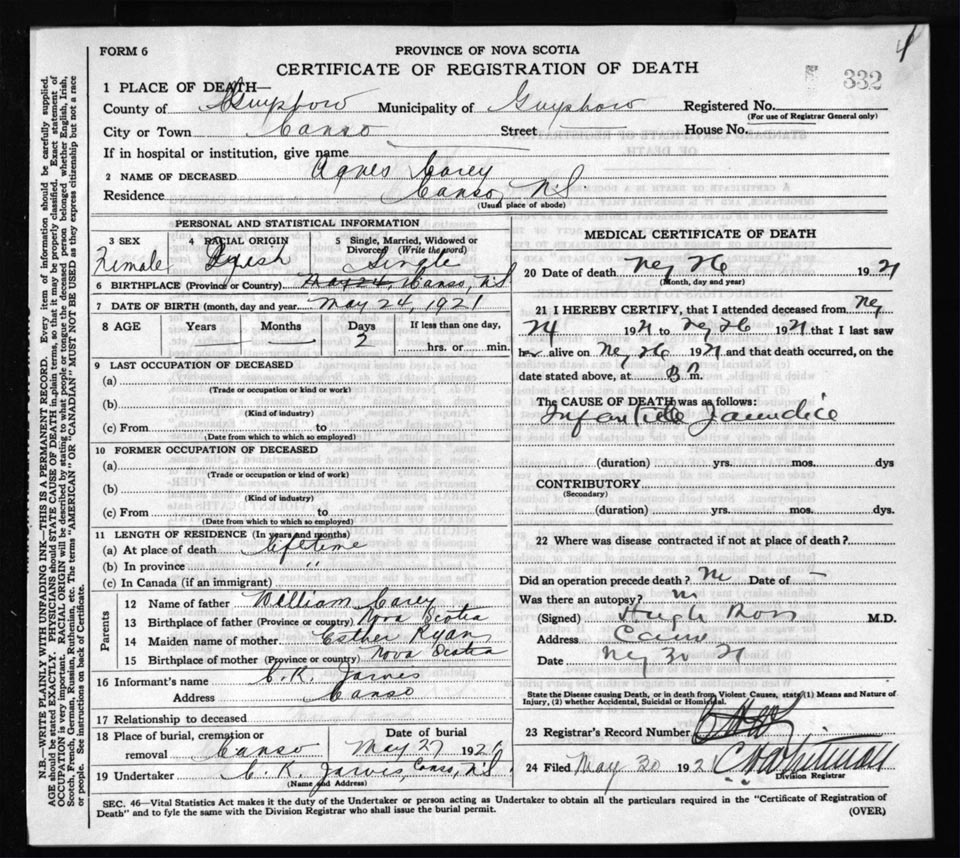 4
FORM 6
PROVINCE OF NOVA SCOTIA
CERTIFICATE OF REGISTRATION OF DEATH
332
1 PLACE OF DEATH—
County of Guysboro Municipality of Guysboro Registered No.
(For use of Registrar General only)
City or Town Canso Street — House No.
If in hospital or institution, give name
2 NAME OF DECEASED Agnes Carey
Residence Canso, N.S
(Usual place of abode)
PERSONAL AND STATISTICAL INFORMATION
3 SEX Female
4 RACIAL ORIGIN Irish
5 Single, Married, Widowed or Divorced (Write the word) Single
6 BIRTHPLACE (Province or Country) May 24 Canso, N.S
7 DATE OF BIRTH (month, day and year) May 24, 1921
8 AGE Years — Months — Days 2 If less than one day, hrs. or min.
9 LAST OCCUPATION OF DECEASED
(a)
(Trade or occupation or kind or work)
(b)
(Kind of industry)
(c) From to
(Date from which to which so employed)
10 FORMER OCCUPATION OF DECEASED
(a)
(Trade or occupation or kind of work)
(b)
(Kind of industry)
(c) From to
(Date from which to which so employed)
11 LENGTH OF RESIDENCE (In years and months)
(a) At place of death lifetime
(b) In province "
(c) In Canada (if an immigrant)
Parents
12 Name of father William Carey
13 Birthplace of father (Province or country) Nova Scotia
14 Maiden name of mother Esther Ryan
15 Birthplace of mother (Province or country) Nova Scotia
16 Informant's name C. K. Jarvis
Address Canso
17 Relationship to deceased
18 Place of burial, cremation or removal Canso Date of burial May 27 192
19 Undertaker C. K. Jarvis, Canso, N.S.
(Name and Address)
MEDICAL CERTIFICATE OF DEATH
20 Date of death 26 1921
(Month, day and year)
21 I HEREBY CERTIFY, that I attended deceased from
24 1921 to 26 1921 that I last saw
alive on 26 1921 and that death occurred, on the
date stated above, at m.
The CAUSE OF DEATH was as follows:
Infantile Jaundice
(duration) yrs. mos. dys
CONTRIBUTORY
(Secondary)
(duration) yrs. mos. dys.
22 Where was disease contracted if not at place of death?
Did an operation precede death? No Date of —
Was there an autopsy? No
(Signed) Hugh Ross M.D.
Address Canso
Date 30 21
State the Disease causing Death, or in death from Violent Causes, state (1) Means and Nature of
Injury, (2) whether Accidental, Suicidal or Homicidal.
23 Registrar's Record Number
24 Filed May 30 1921
Division Registrar
SEC. 46—Vital Statistics Act makes it the duty of the Undertaker or person acting as Undertaker to obtain all the particulars required in the "Certificate of Registration of
Death" and to fyle the same with the Division Registrar who shall issue the burial permit. (OVER)
N.B.—WRITE PLAINLY WITH UNFADING INK—THIS IS A PERMANENT RECORD. Every item of information should be carefully supplied.
AGE should be stated EXACTLY. PHYSICIANS should STATE CAUSE OF DEATH in plain terms, so that it may be properly classified. Exact statement of
OCCUPATION is very important. RACIAL ORIGIN will be described by stating to what people or tongue the deceased person belonged whether English, Irish,
Scotch, French, German, Russian, Ruthenian, etc. The terms "AMERICAN" OR "CANADIAN" MUST NOT BE USED as they express citizenship but not a race
or people. See instructions on back of Certificate.